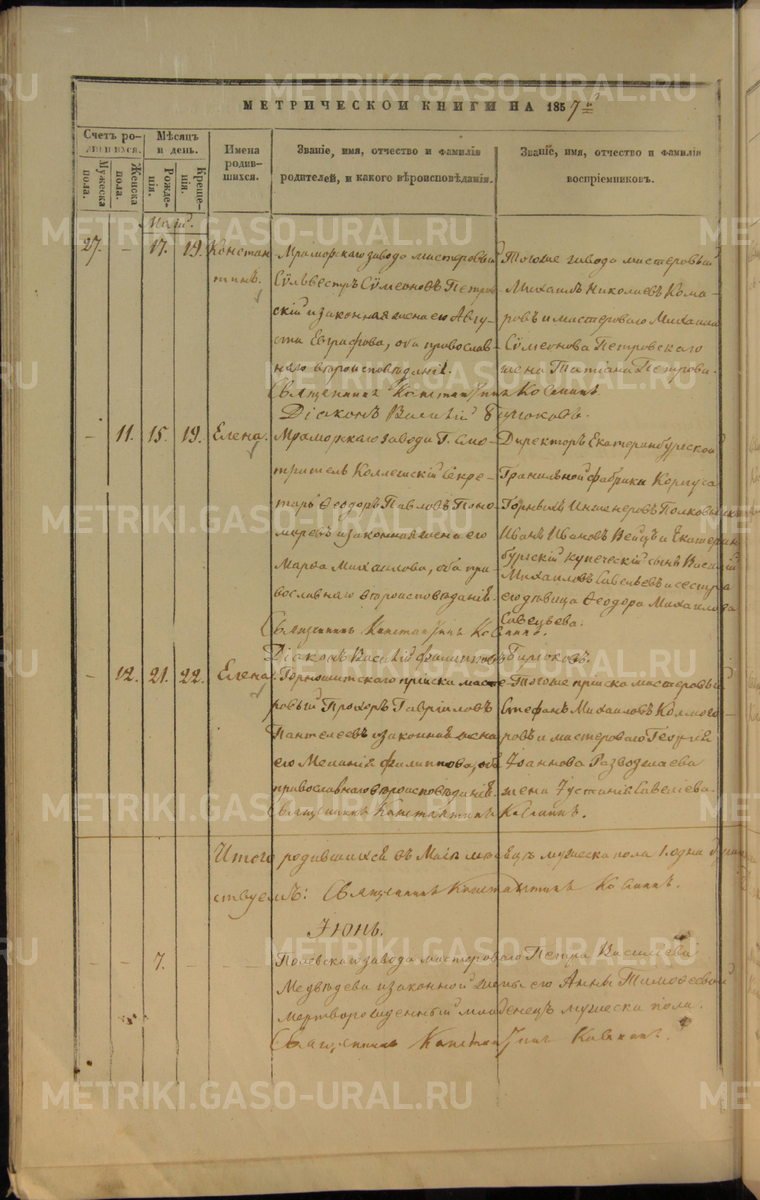 METRIKI.GASO-URAL.RU
МЕТРИЧЕСКОЙ КНИГИ НА 1857
Счетъ родившихся.
Мужеска пола.
Женска пола.
Мѣсяцъ и день.
Рожденія.
Крещенія.
Имена родившихся.
Званіе, имя, отчество и фамилія
родителей, и какого вѣроисповѣданія.
Званіе, имя, отчество и фамилія
воспріемниковъ.
27. - 17. 19. Констан
тинъ.
Мраморскаго завода мастеровый
Сѵльвестръ Сѵмеоновъ Петров
скій и законная жена его Авгу
ста Евграфова, оба православ
наго вѣроисповѣданія.
Тогоже завода мастеровый
Михаилъ Николаевъ Кома
ровъ и мастероваго Михаила
Сѵмеонова Петровскаго
жена Татіана Петрова.
Священникъ Константинъ
Діаконъ Василій Бирюковъ.
- 11. 15. 19. Елена.
Мраморскаго завода Г. Смо
тритель Коллежскій Секре
тарь Ѳеодоръ Павловъ Поно
маревъ и законная жена его
Марѳа Михаилова, оба пра
вославнаго вѣроисповѣданія.
Директоръ Екатеринбургской
Гранильной фабрики Корпуса
Горныхъ Инженеровъ Полковникъ
Иванъ Ивановъ Вейцъ и Екатерин
бургскій купеческій сынъ Василій
Михаиловъ Савельевъ и сестра
его дѣвица Ѳеодора Михаилова
Савельева.
Священникъ Константинъ
Діаконъ Василій Бирюковъ.
- 12. 21. 22. Елена.
Горнощитскаго пріиска масте
ровый Прохоръ Гавріиловъ
Пантелеевъ и законная жена
его Меланія Филиппова, оба
православнаго вѣроисповѣданія.
Тогоже пріиска мастеровый
Стефанъ Михаиловъ Колмого
ровъ и мастероваго Георгія
Іоаннова
жена Іустинія Савеліева.
Священникъ Константинъ
Итого родившихся въ Маѣ мѣсяцѣ мужеска пола 1. одинъ
Священникъ Константинъ
Іюнь.
- - 7. -
Полевскаго завода мастероваго Петра Василіева
Медвѣдева и законной жены его Анны Тимоѳеевой
мертворожденный младенецъ мужеска пола.
Священникъ Константинъ